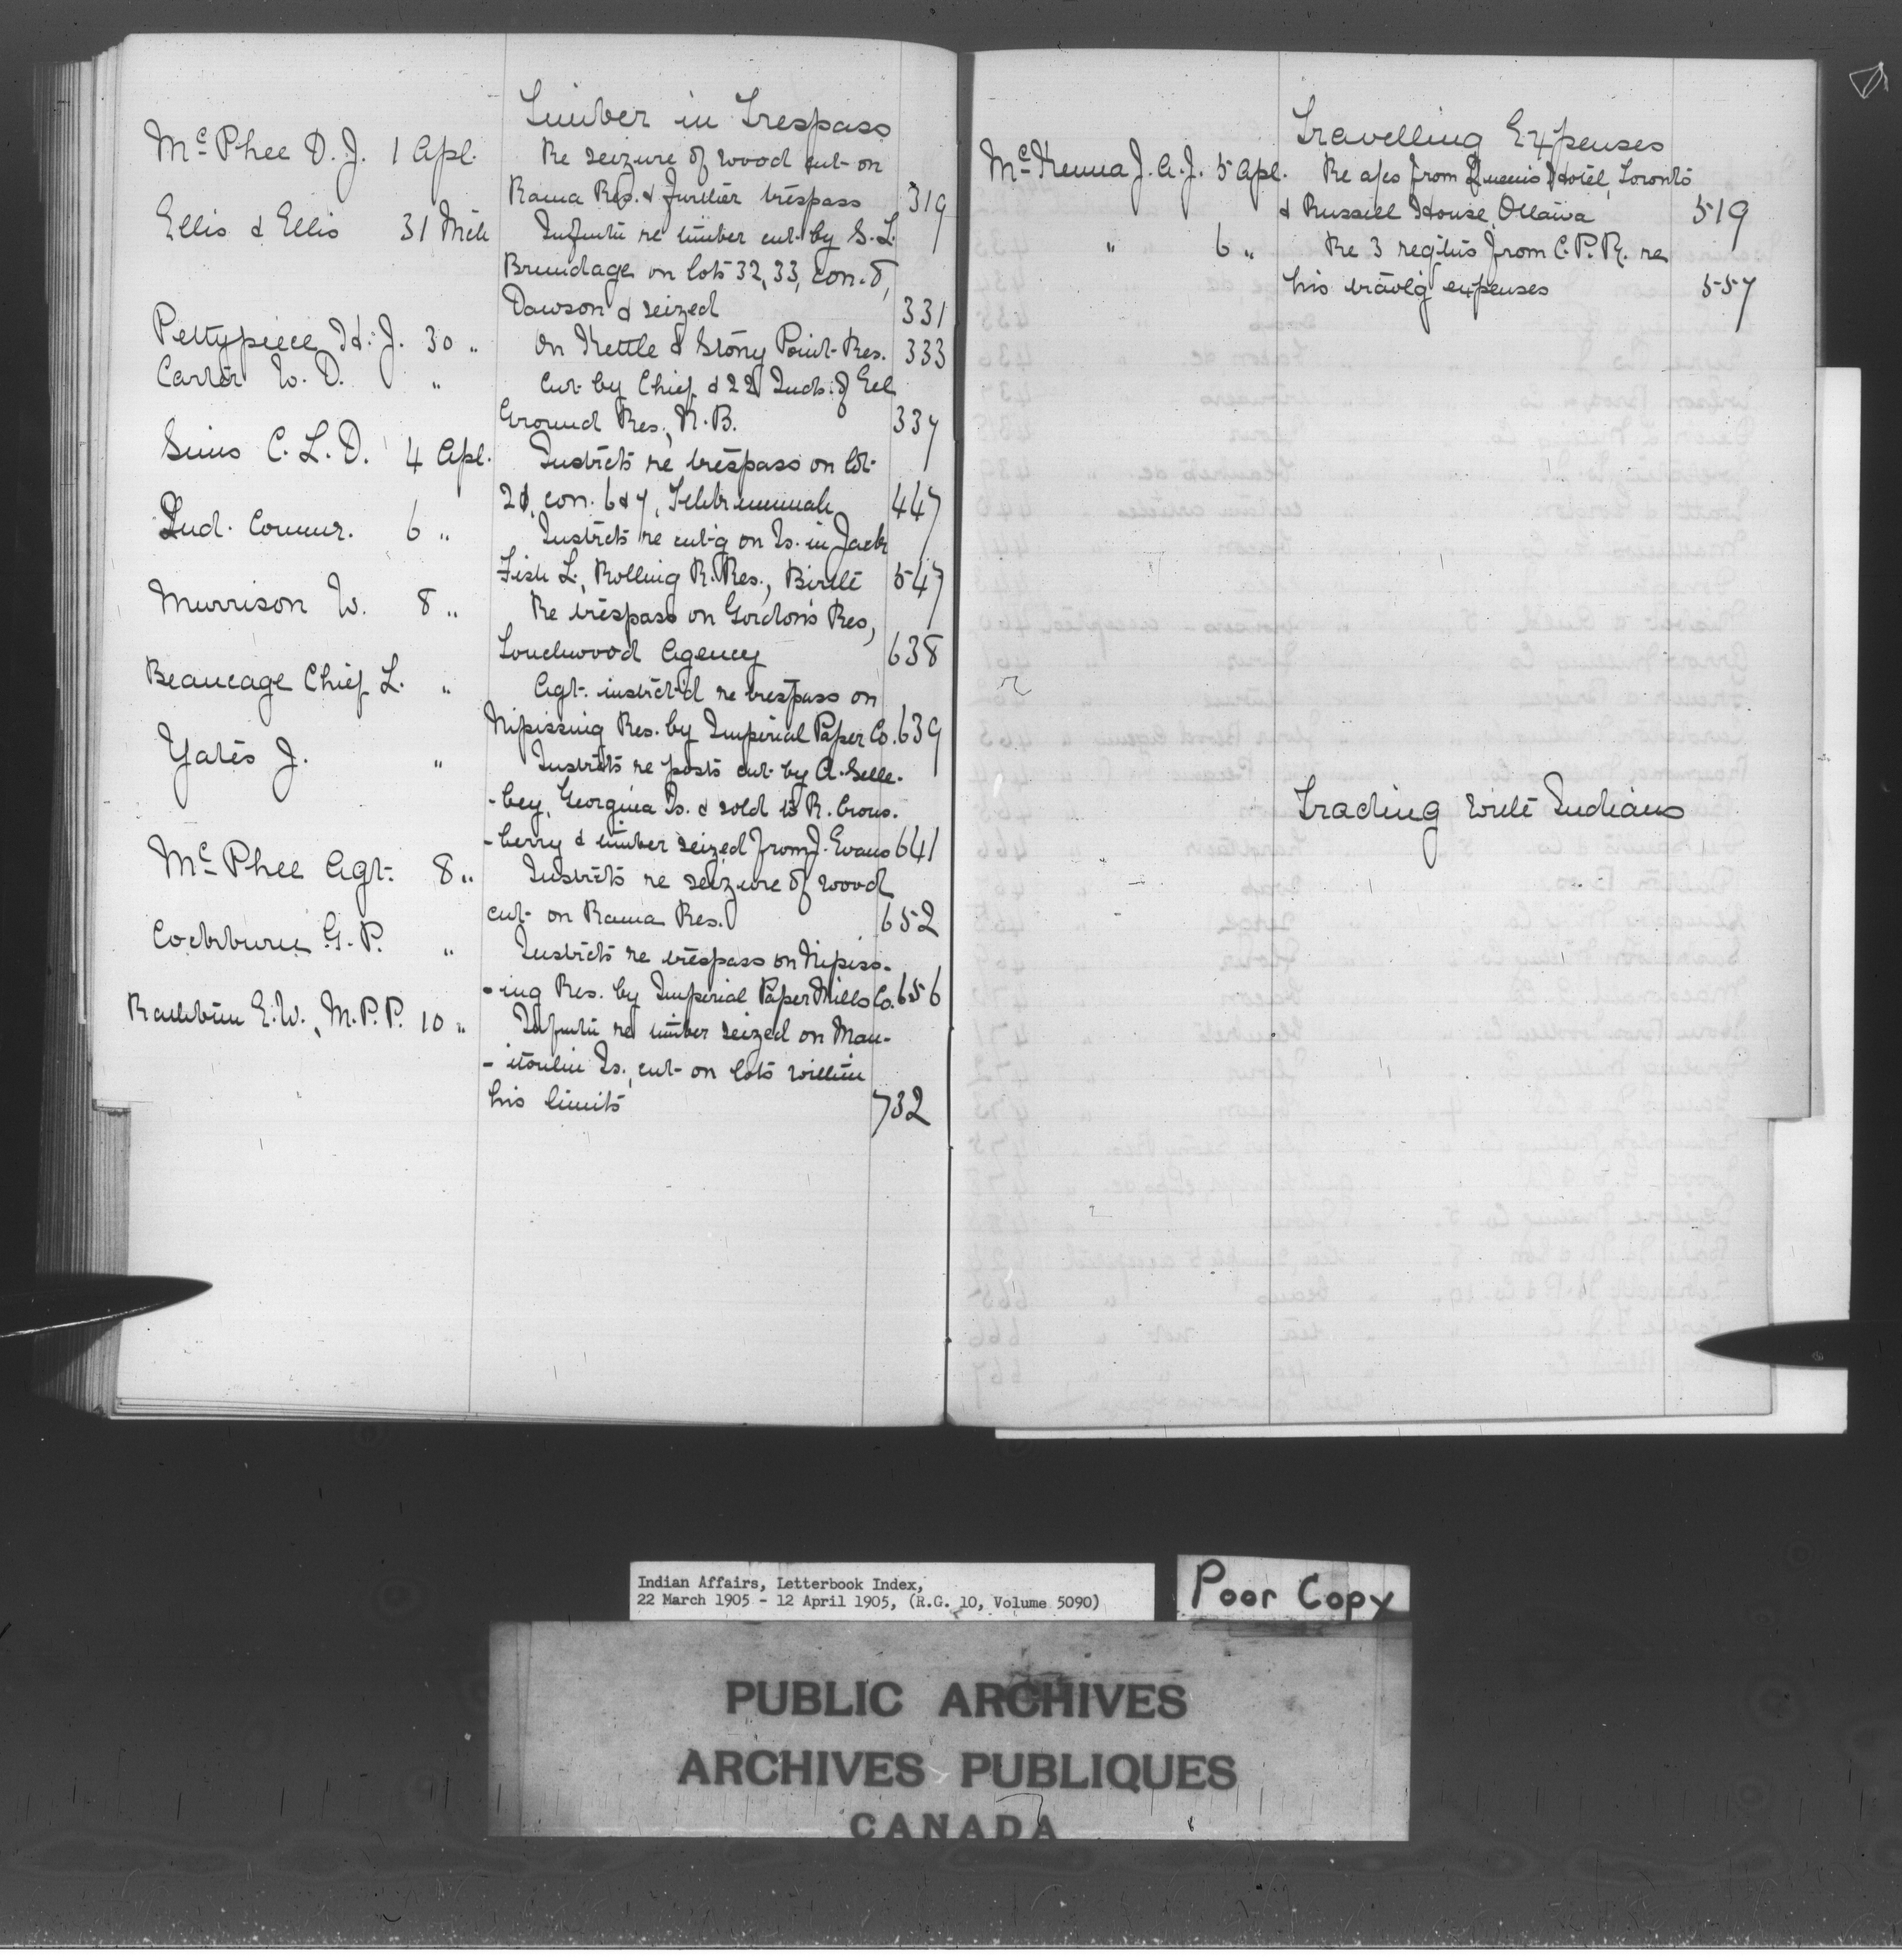 Timber in Trespass
McPhee D. J. 1 Apl. Re seizure of wood cut on
Rama Res. & further trespass 319
Ellis & Ellis 31 Mch Infmtn re timber cut by S. L.
Brundage on lots 32, 33, con. 8,
Dawson & seized 331
Pettypiece H. J. 30 " On Kettle & Stony Point Res. 333
Carter W. D. " Cut by Chief & 22 Inds. of Eel
Ground Res., N.B. 337
Sims C. L. D. 4 Apl. Instrcts re trespass on lot
con. 6 & 7, Tehkummah 447
Ind. Commr. 6 " Instrcts re cut'g on Is. in Jack
Fish L., Rolling R. Res., Birtle 547
Murrison W. 8 " Re trespass on Gordon's Res,
Touchwood Agency 638
Beaucage Chief L. " Agt. instrct'd re trespass on
Nipissing Res. by Imperial Paper Co. 639
Yates J. " Instrcts re posts cut by A. Selle-
-bey, Georgina Is. & sold to R. Crons-
-berry & timber seized from J. Evans 641
McPhee Agt. 8 " Instrcts re seizure of wood
cut on Rama Res. 652
Cockburn G. P. " Instrcts re trespass on Nipiss-
-ing Res. by Imperial Paper Mills Co. 656
Rathbun E. W., M.P.P. 10 " Infmtn re timber seized on Man-
-itoulin Is., cut on lots within
his limits 732
Travelling Expenses
McKenna J. A. J. 5 Apl. Re a/cs from Queen's Hotel, Toronto
& Russell House, Ottawa 519
" 6 " Re 3 reqtns from C.P.R. re
his travlg expenses 557
Trading with Indians
Indian Affairs, Letterbook Index,
22 March 1905 - 12 April 1905, (R.G. 10, Volume 5090)
Poor Copy
PUBLIC ARCHIVES
ARCHIVES PUBLIQUES
CANADA